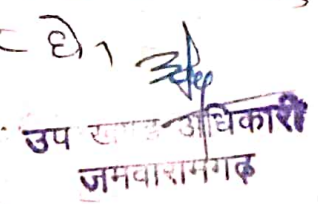 उप खण्ड अधिकारी
जमवारामगढ़